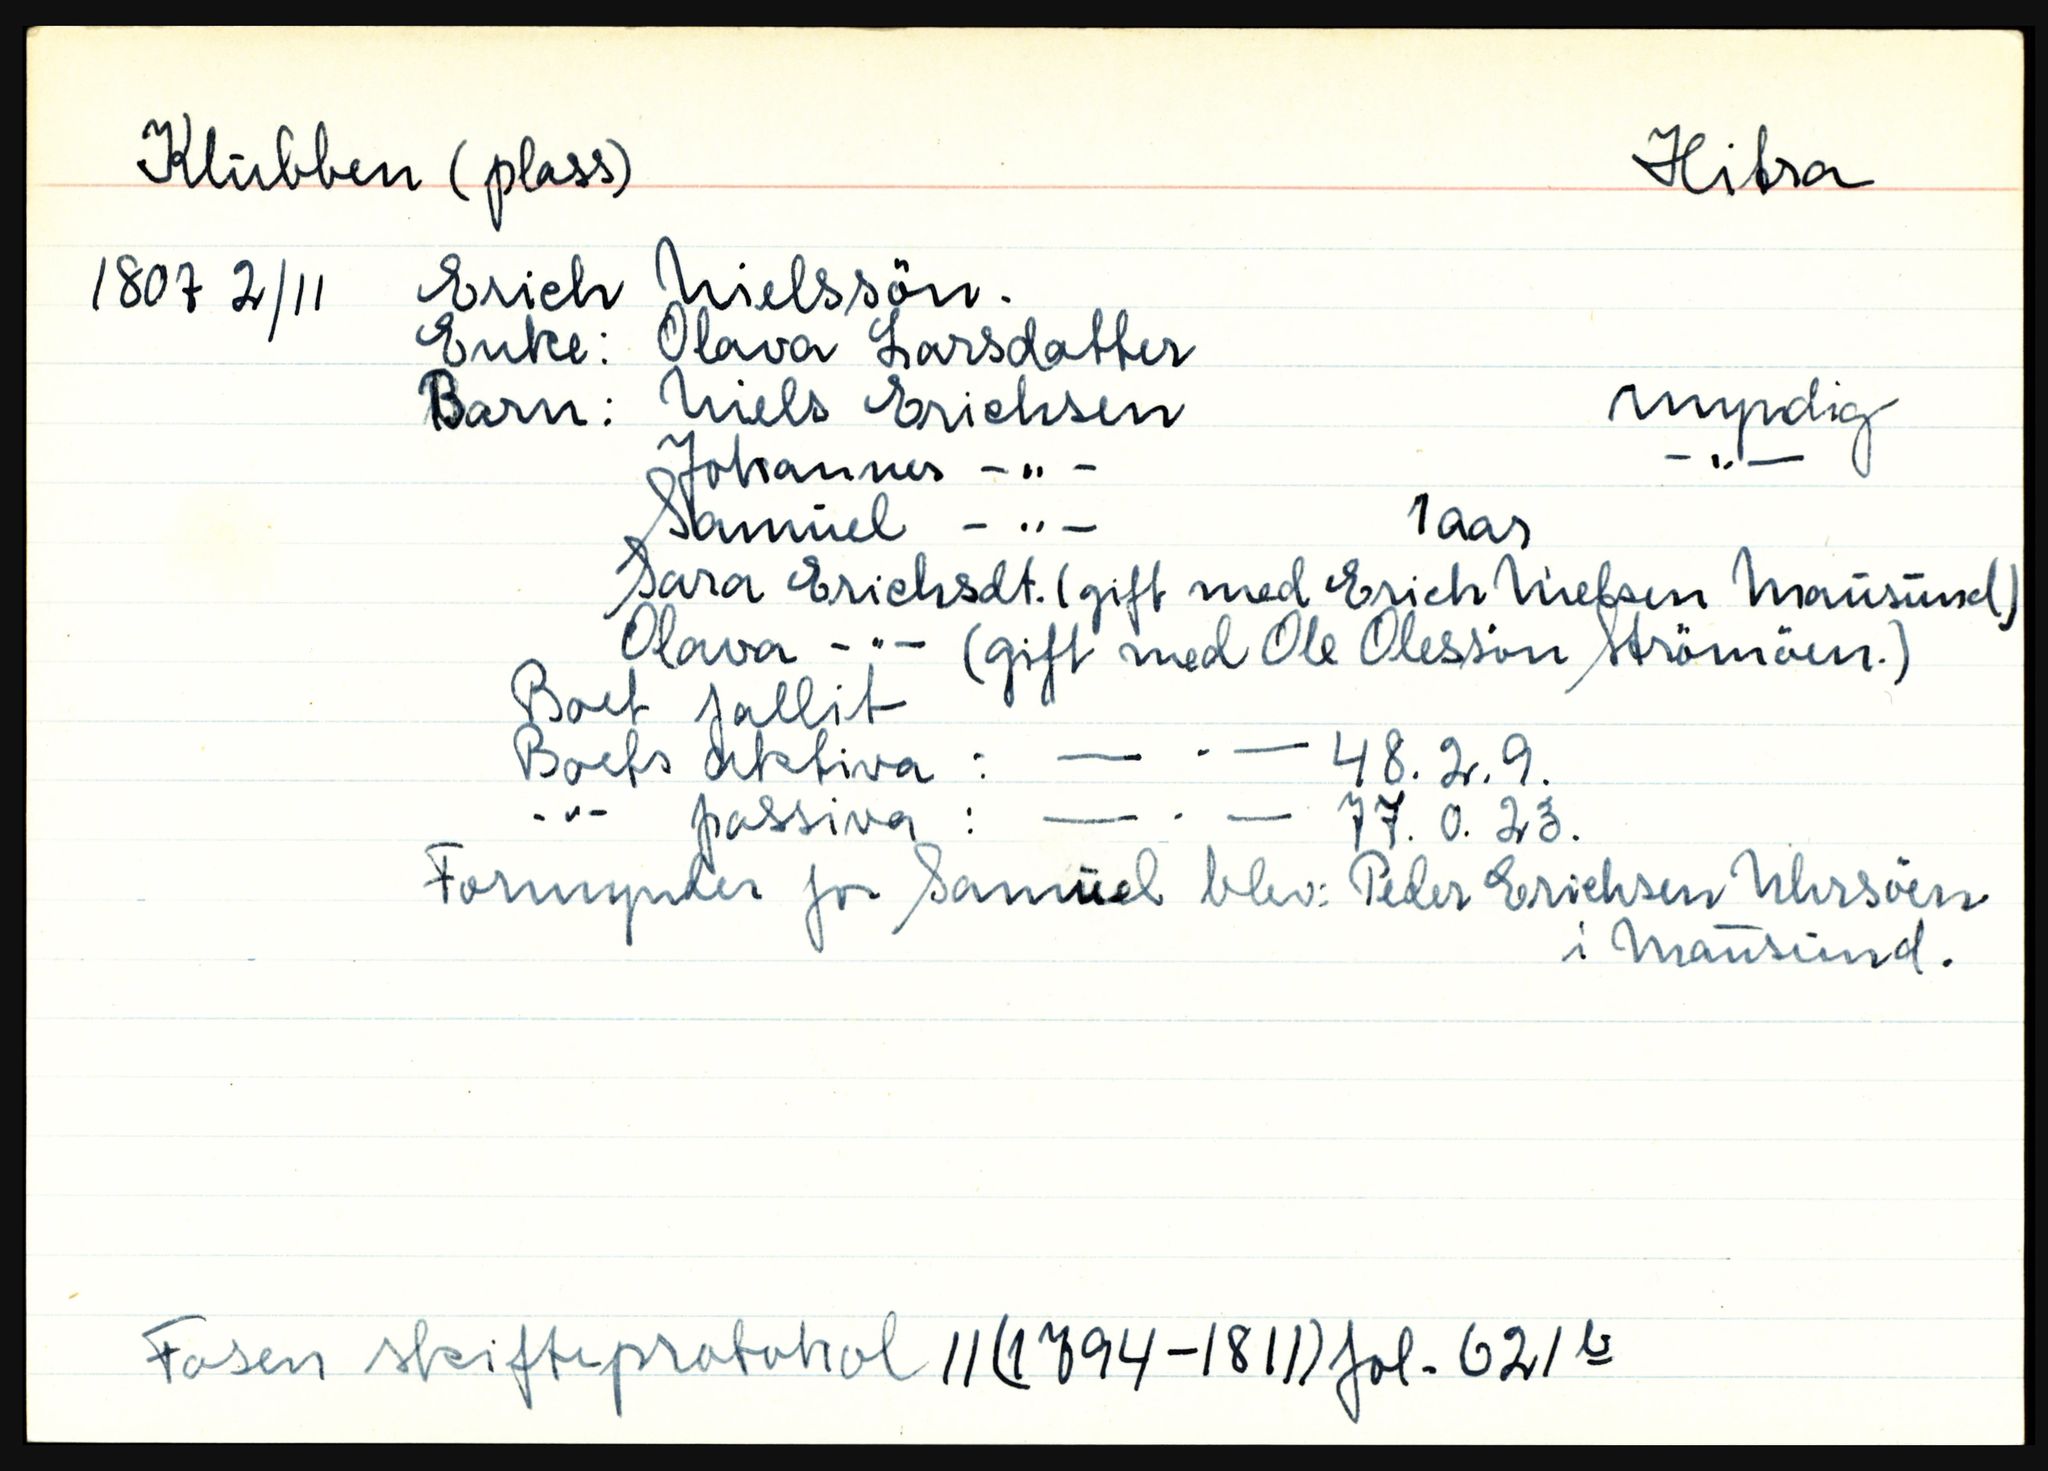 Klubben (plass) Hitra
1807 2/11 Erich Nielssön.
Enke: Olava Larsdatter
Barn: Niels Erichsen myndig
Johannes -"- -"-
Samuel -"- 1 aar
Sara Erichsdt. (gift med Erich Nielsen Mausund)
Olava -"- (gift med Ole Olesson Strömöen.)
Boet fallit
Boets aktiva : — . — 48. 2. 9.
-"- passiva : — . — 77. 0. 23.
Formynder for Samuel blev: Peder Erichsen
i Mausund.
Fosen skifteprotokol 11 (1794-1811) fol. 621 b